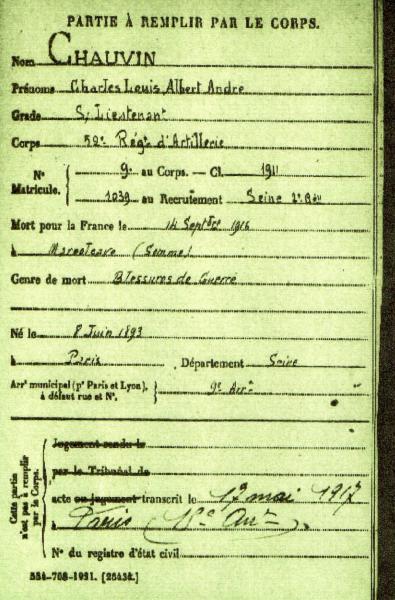 PARTIE À REMPLIR PAR LE CORPS.
Nom CHAUVIN
Prénoms Charles Louis Albert André
Grade S/Lieutenant
Corps 52e Régt d'Artillerie
N° Matricule. 9e au Corps. — Cl. 1911
1039 au Recrutement Seine 2e Bau
Mort pour la France le 14 Septbre 1916
à (Somme)
Genre de mort Blessures de Guerre
Né le 8 Juin 1893
à Paris Département Seine
Arrt municipal (pr Paris et Lyon), à défaut rue et N°. 9e Arrt
Cette partie n'est pas à remplir par le Corps.
Jugement rendu le
par le Tribunal de
acte ou jugement transcrit le mai 1917
à Paris
N° du registre d'état civil
534-708-1921. [26434.]